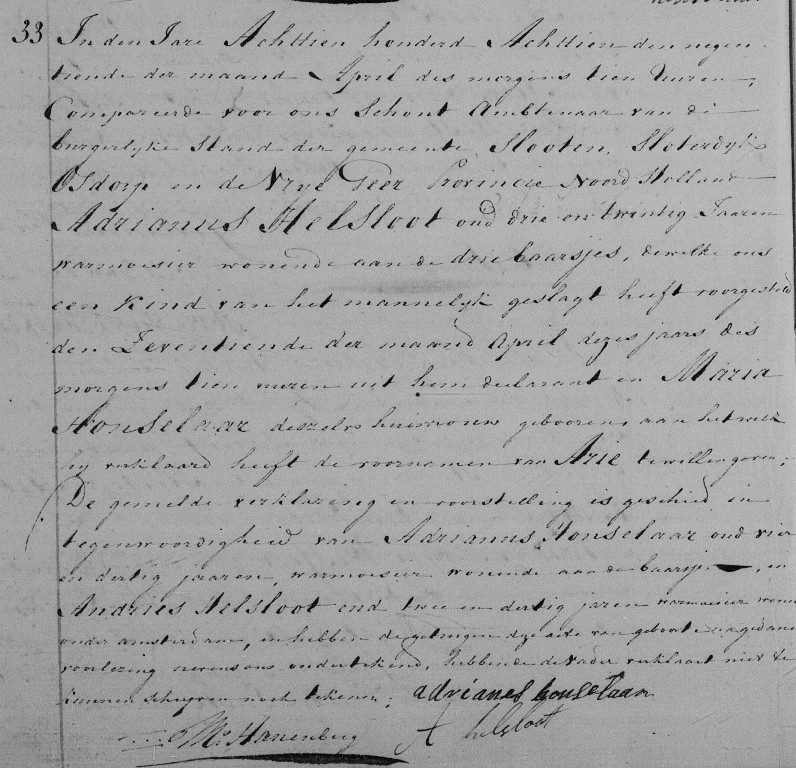 33 In den Jare Achttien honderd Achttien den negen
tiende der maand April des morgens tien Uuren,
Compareerde voor ons Schout Ambtenaar van de
burgerlyke Stand der gemeente Slooten, Sloterdyk
Osdorp en de Vrye Geer Provincie Noord Holland
Adrianus Helsloot oud drie en twintig Jaaren
warmoesier wonende aan de drie baarsjes, dewelke ons
een Kind van het mannelyk geslagt heeft voorgesteld
den Zeventiende der maand April dezes jaars des
morgens tien uuren uit hem declarant en Maria
Honselaar deszelvs huisvrouw gebooren, aan het welk
hy verklaard heeft de voornamen van Arie te willen geven;
De gemelde verklaring en voorstelling is geschied in
tegenwoordigheid van Adrianus Honselaar oud vier
en dertig jaaren, warmoesier wonende aan de baarsjes, en
Andries Helsloot oud twee en dertig jaren warmoesier wonen
onder amsterdam, en hebben de getuigen deze acte van geboorte na gedane
voorlezing nevens ons ondertekend, hebbende de vader verklaart niet te
kunnen schryven noch tekenen;
adrianes honselaar
Hanenberg
A helsloot